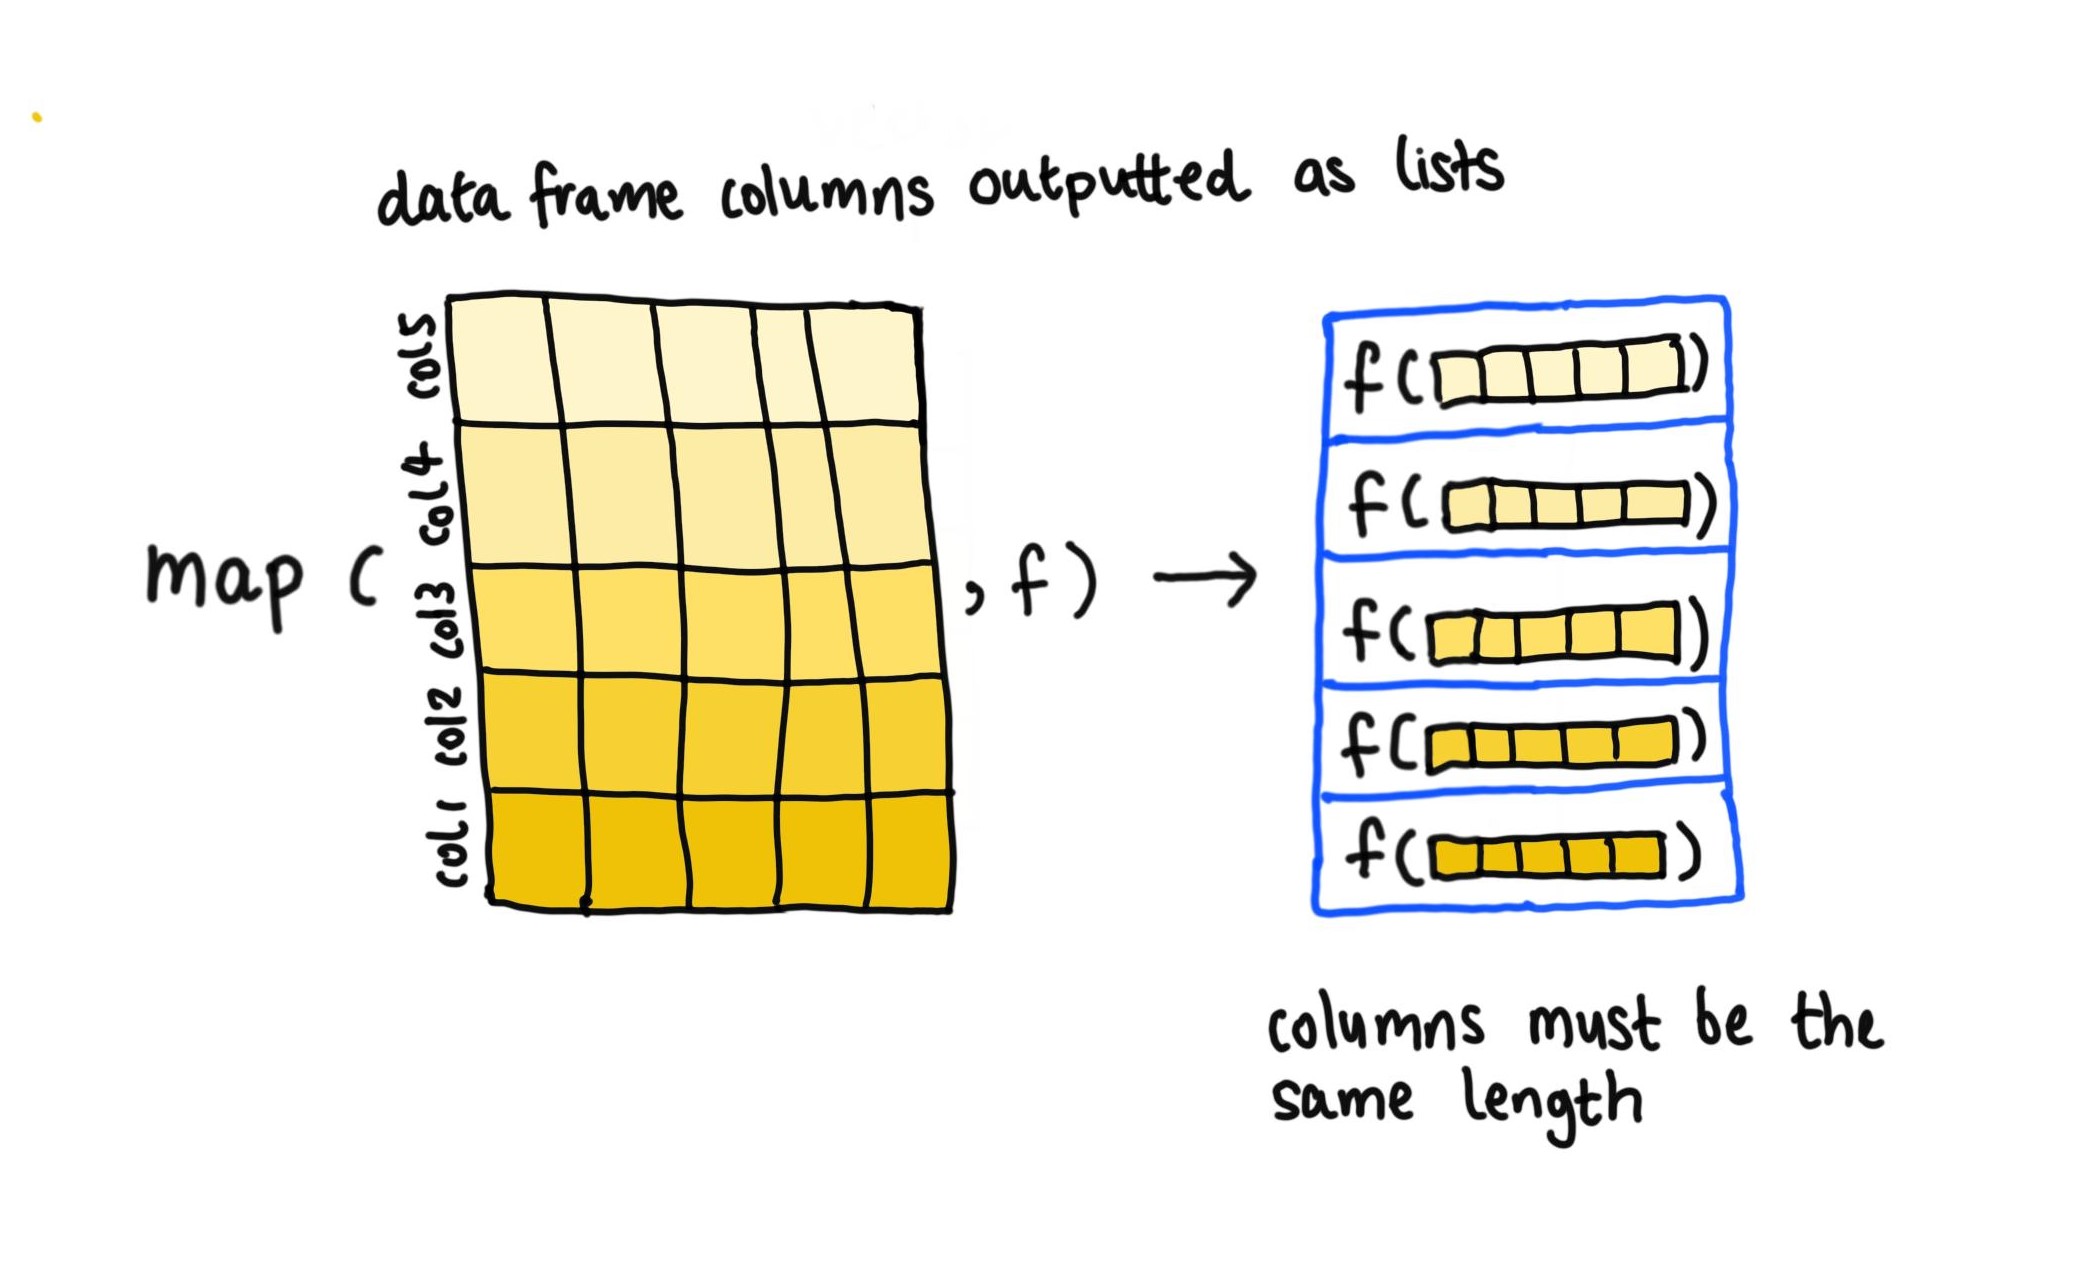 data frame columns outputted as lists
col5
col4
col3
col2
col1
map (
, f )
f( )
f( )
f( )
f( )
f( )
columns must be the
same length